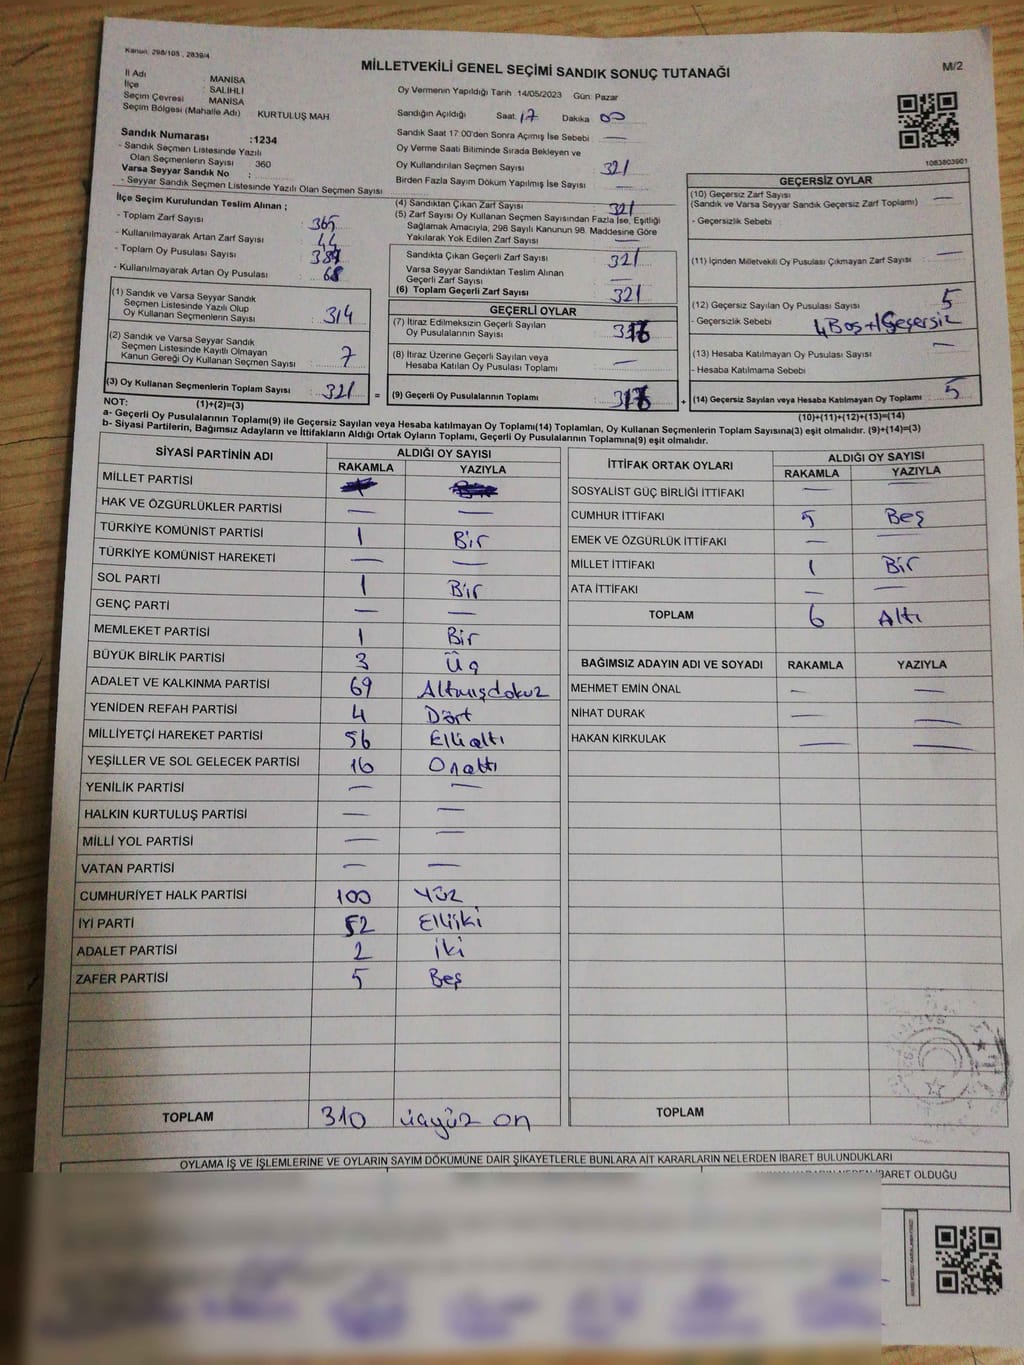 Kanun: 298/105 , 2839/4
MİLLETVEKİLİ GENEL SEÇİMİ SANDIK SONUÇ TUTANAĞI
M/2
İl Adı : MANİSA
İlçe : SALİHLİ
Seçim Çevresi : MANİSA
Seçim Bölgesi (Mahalle Adı) KURTULUŞ MAH.
Sandık Numarası :1234
- Sandık Seçmen Listesinde Yazılı
Olan Seçmenlerin Sayısı 360
Varsa Seyyar Sandık No :
- Seyyar Sandık Seçmen Listesinde Yazılı Olan Seçmen Sayısı
İlçe Seçim Kurulundan Teslim Alınan ;
- Toplam Zarf Sayısı : 365
- Kullanılmayarak Artan Zarf Sayısı : 44
- Toplam Oy Pusulası Sayısı : 389
- Kullanılmayarak Artan Oy Pusulası : 68
(1) Sandık ve Varsa Seyyar Sandık
Seçmen Listesinde Yazılı Olup
Oy Kullanan Seçmenlerin Sayısı : 314
(2) Sandık ve Varsa Seyyar Sandık
Seçmen Listesinde Kayıtlı Olmayan
Kanun Gereği Oy Kullanan Seçmen Sayısı : 7
(3) Oy Kullanan Seçmenlerin Toplam Sayısı : 321 =
Oy Vermenin Yapıldığı Tarih : 14/05/2023 Gün: Pazar
Sandığın Açıldığı Saat: 17 Dakika 00
Sandık Saat 17:00'den Sonra Açımış İse Sebebi —
Oy Verme Saati Bitiminde Sırada Bekleyen ve
Oy Kullandırılan Seçmen Sayısı : 321
Birden Fazla Sayım Döküm Yapılmış İse Sayısı : —
(4) Sandıktan Çıkan Zarf Sayısı : 321
(5) Zarf Sayısı Oy Kullanan Seçmen Sayısından Fazla İse, Eşitliği
Sağlamak Amacıyla, 298 Sayılı Kanunun 98. Maddesine Göre
Yakılarak Yok Edilen Zarf Sayısı : —
Sandıkta Çıkan Geçerli Zarf Sayısı : 321
Varsa Seyyar Sandıktan Teslim Alınan
Geçerli Zarf Sayısı : —
(6) Toplam Geçerli Zarf Sayısı : 321
GEÇERLİ OYLAR
(7) İtiraz Edilmeksizin Geçerli Sayılan
Oy Pusulalarının Sayısı : 316
(8) İtiraz Üzerine Geçerli Sayılan veya
Hesaba Katılan Oy Pusulası Toplamı : —
(9) Geçerli Oy Pusulalarının Toplamı : 316 +
GEÇERSİZ OYLAR
(10) Geçersiz Zarf Sayısı
(Sandık ve Varsa Seyyar Sandık Geçersiz Zarf Toplamı) : —
- Geçersizlik Sebebi :
(11) İçinden Milletvekili Oy Pusulası Çıkmayan Zarf Sayısı : —
(12) Geçersiz Sayılan Oy Pusulası Sayısı : 5
- Geçersizlik Sebebi 4 Boş+1Geçersiz
(13) Hesaba Katılmayan Oy Pusulası Sayısı : —
- Hesaba Katılmama Sebebi
(14) Geçersiz Sayılan veya Hesaba Katılmayan Oy Toplamı : 5
1083803901
NOT: (1)+(2)=(3) (10)+(11)+(12)+(13)=(14)
a- Geçerli Oy Pusulalarının Toplamı(9) ile Geçersiz Sayılan veya Hesaba katılmayan Oy Toplamı(14) Toplamları, Oy Kullanan Seçmenlerin Toplam Sayısına(3) eşit olmalıdır. (9)+(14)=(3)
b- Siyasi Partilerin, Bağımsız Adayların ve İttifakların Aldığı Ortak Oyların Toplamı, Geçerli Oy Pusulalarının Toplamına(9) eşit olmalıdır.
SİYASİ PARTİNİN ADI ALDIĞI OY SAYISI
RAKAMLA YAZIYLA
MİLLET PARTİSİ
HAK VE ÖZGÜRLÜKLER PARTİSİ — —
TÜRKİYE KOMÜNİST PARTİSİ 1 Bir
TÜRKİYE KOMÜNİST HAREKETİ — —
SOL PARTİ 1 Bir
GENÇ PARTİ — —
MEMLEKET PARTİSİ 1 Bir
BÜYÜK BİRLİK PARTİSİ 3 Üç
ADALET VE KALKINMA PARTİSİ 69 Altmışdokuz
YENİDEN REFAH PARTİSİ 4 Dört
MİLLİYETÇİ HAREKET PARTİSİ 56 Ellialtı
YEŞİLLER VE SOL GELECEK PARTİSİ 16 Onaltı
YENİLİK PARTİSİ — —
HALKIN KURTULUŞ PARTİSİ — —
MİLLİ YOL PARTİSİ — —
VATAN PARTİSİ — —
CUMHURİYET HALK PARTİSİ 100 Yüz
İYİ PARTİ 52 Elliiki
ADALET PARTİSİ 2 iki
ZAFER PARTİSİ 5 Beş
TOPLAM 310 üçyüz on
İTTİFAK ORTAK OYLARI ALDIĞI OY SAYISI
RAKAMLA YAZIYLA
SOSYALİST GÜÇ BİRLİĞİ İTTİFAKI — —
CUMHUR İTTİFAKI 5 Beş
EMEK VE ÖZGÜRLÜK İTTİFAKI — —
MİLLET İTTİFAKI 1 Bir
ATA İTTİFAKI — —
TOPLAM 6 Altı
BAĞIMSIZ ADAYIN ADI VE SOYADI RAKAMLA YAZIYLA
MEHMET EMİN ÖNAL — —
NİHAT DURAK — —
HAKAN KIRKULAK — —
TOPLAM
OYLAMA İŞ VE İŞLEMLERİNE VE OYLARIN SAYIM DÖKÜMÜNE DAİR ŞİKAYETLERLE BUNLARA AİT KARARLARIN NELERDEN İBARET BULUNDUKLARI
İBARET OLDUĞU